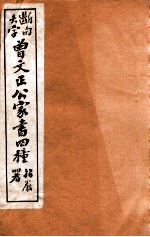 斷句
大字
曾文正公家書四種